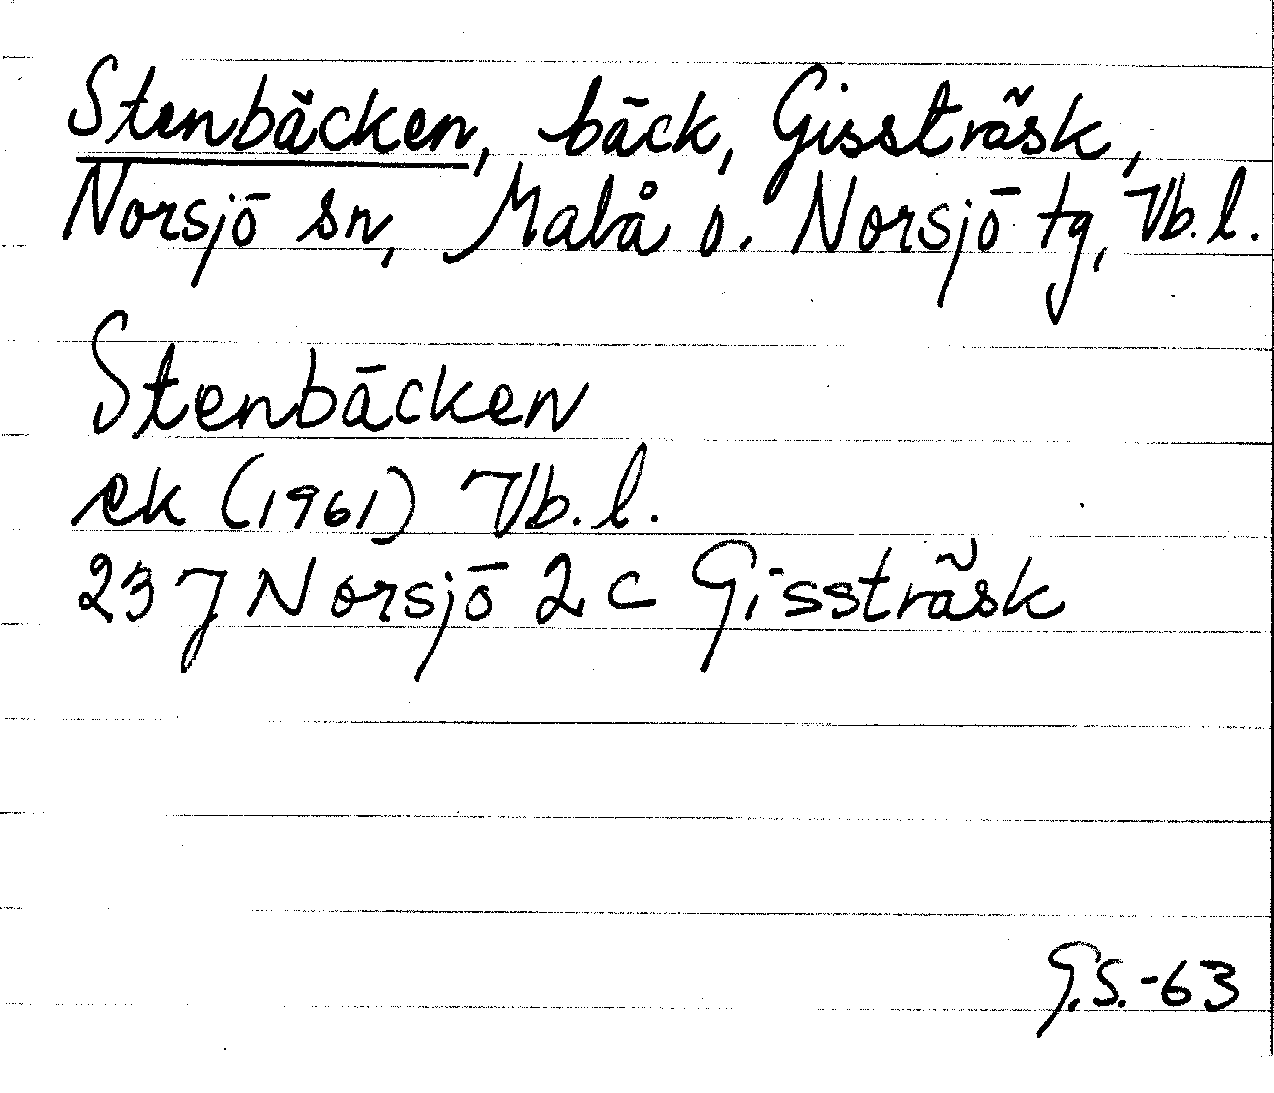 Stenbäcken, bäck, Gissträsk,
Norsjö sn, Malå o. Norsjö tg, Vb. l.
Stenbäcken
ek (1961) Vb. l.
23 J Norsjö 2 c Gissträsk
G.S.-63